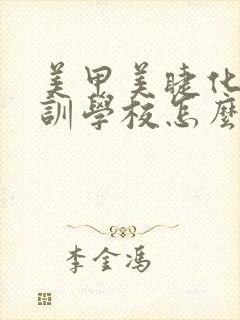 美甲美睫化
訓學校怎麼
李金馮